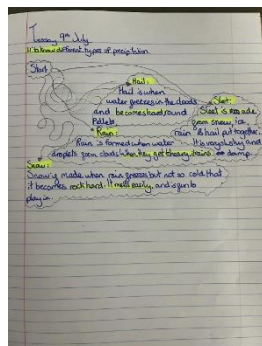 Tuesday 9th July
LI: to know different types of precipitation
Start
Hail:
Hail is when
water freezes in the clouds
and becomes hard round
Pellets.
Sleet:
Sleet is made
from snow, ice
rain & hail put together.
It is very slushy and
damp.
Rain:
Rain is formed when water
droplets form clouds when they get to heavy, it rains
Snow:
Snow is made when rain freezes but not so cold that
it becomes rock hard. It melts easily, and is fun to
play in.